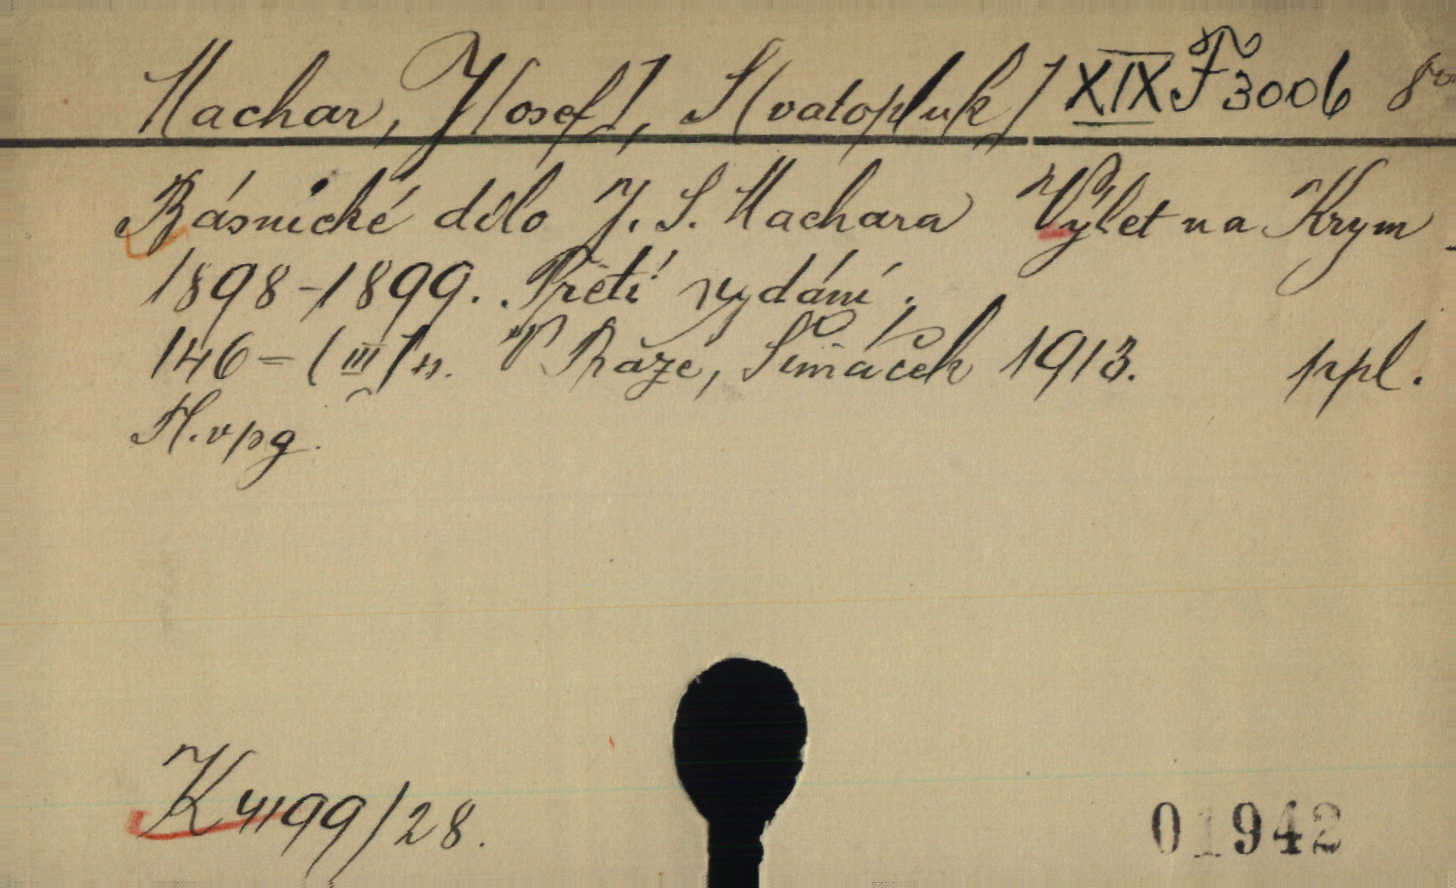 Machar, J[osef], S[vatopluk] XIX F 3006 8º
Básnické dílo J. S. Machara Výlet na Krym
1898-1899. Třetí vydání.
146-(III) s. V Praze, Šimáček 1913. ppl.
H. v pg.
K 4199/28.
01942